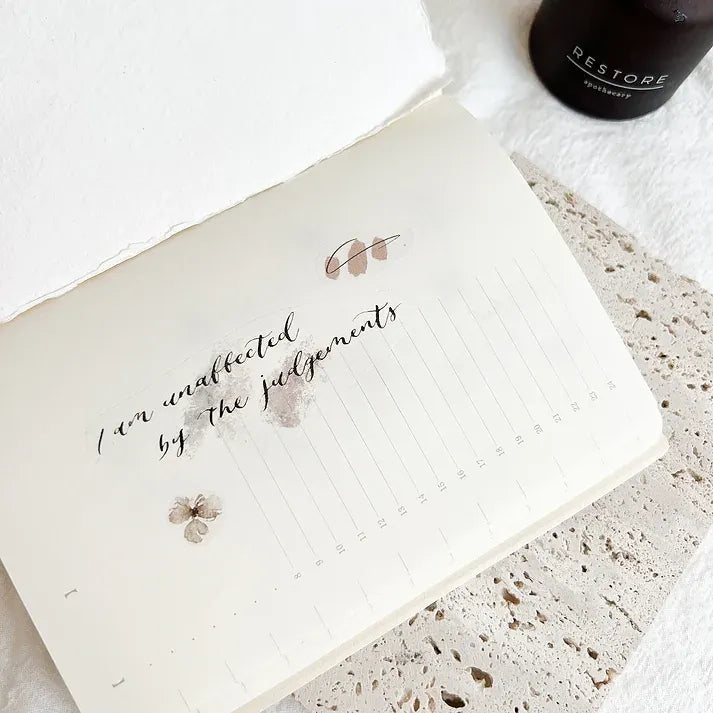 RESTORE
apothecary
I am unaffected
by the judgements
8
9
10
11
12
13
14
15
16
17
18
19
20
21
22
23
24